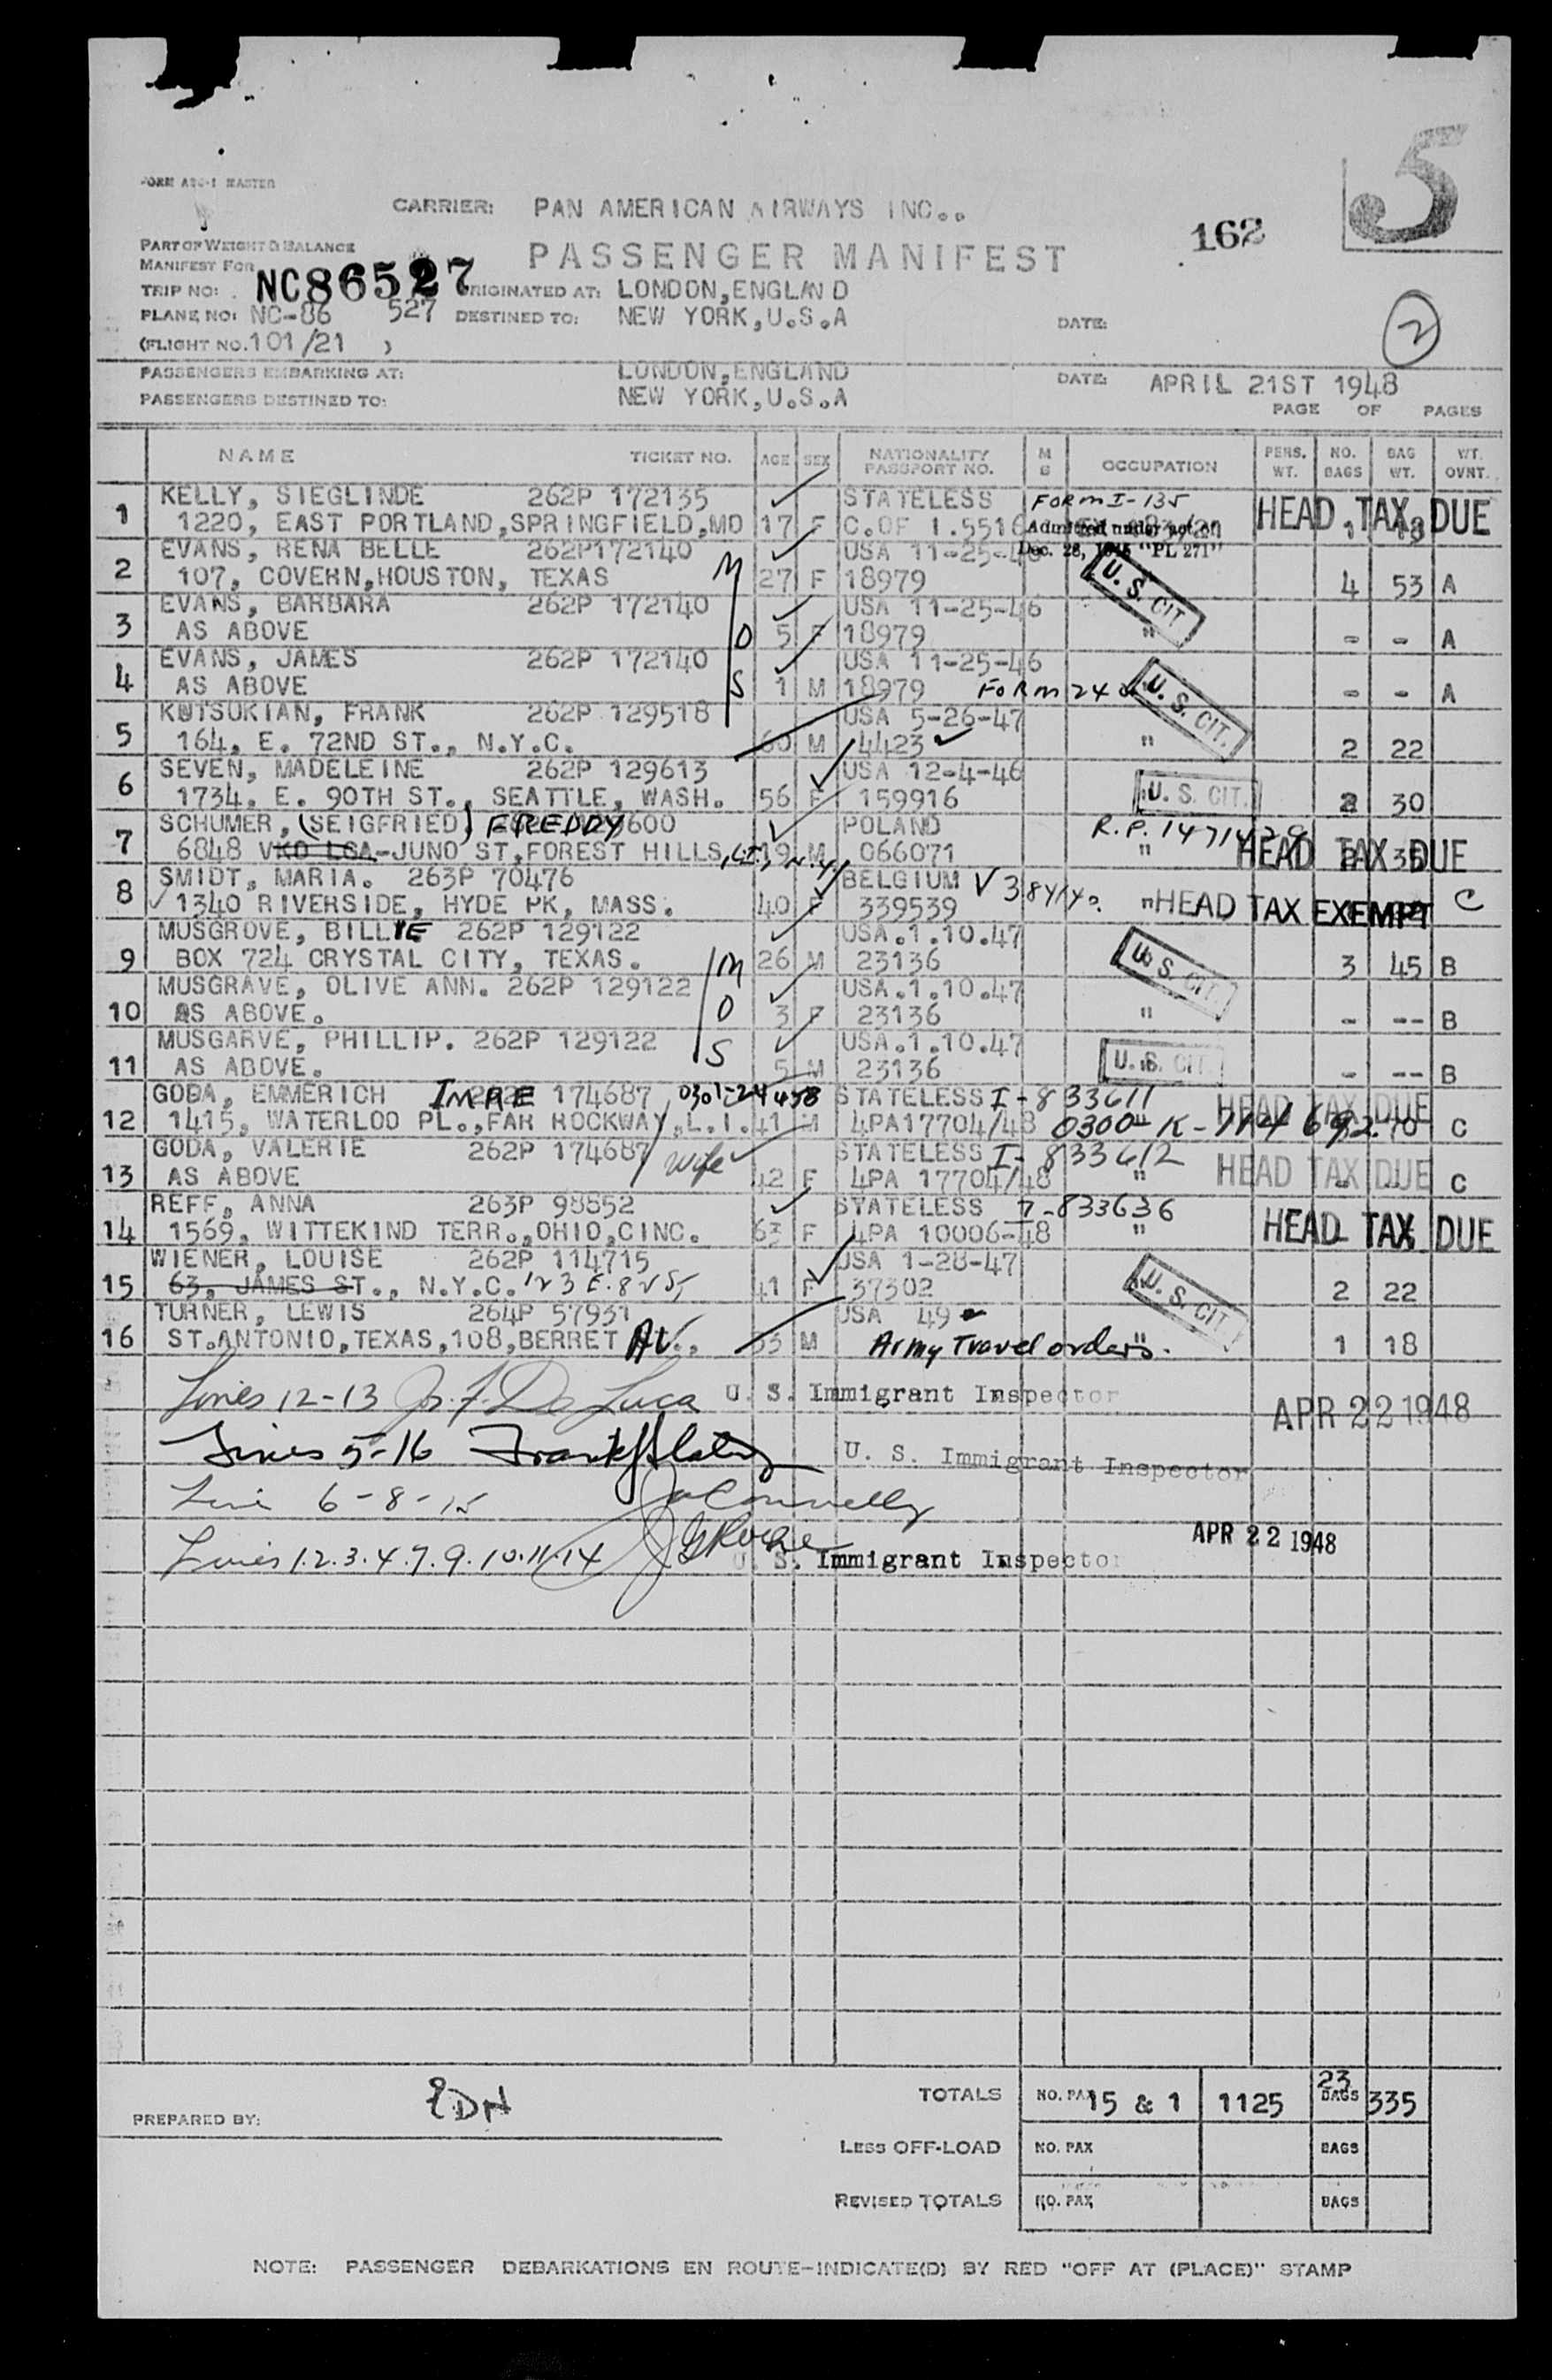 5
FORM ASC-1 MASTER
CARRIER: PAN AMERICAN AIRWAYS INC..
162
PART OF WEIGHT & BALANCE
PASSENGER MANIFEST
MANIFEST FOR
TRIP NO: NC86527 ORIGINATED AT: LONDON,ENGLAND
PLANE NO: NC-86 527 DESTINED TO: NEW YORK,U.S.A DATE: 2
(FLIGHT NO. 101/21 )
PASSENGERS EMBARKING AT: LONDON,ENGLAND DATE: APRIL 21ST 1948
PASSENGERS DESTINED TO: NEW YORK,U.S.A
PAGE OF PAGES
NAME TICKET NO. AGE SEX NATIONALITY PASSPORT NO. OCCUPATION PERS. WT. NO. BAGS BAG WT. WT. OVNT.
KELLY, SIEGLINDE 262P 172135 STATELESS FORM I-135
1 1220, EAST PORTLAND,SPRINGFIELD,MO 17 F C.OF I.5516 Admitted under act of HEAD TAX DUE
Dec. 28, 1945 "PL 271"
EVANS, RENA BELLE 262P172140 USA 11-25-46
2 107, COVERN,HOUSTON, TEXAS M 27 F 18979 U.S. CIT 4 53 A
EVANS, BARBARA 262P 172140 USA 11-25-46
3 AS ABOVE O 5 F 18979 " - - A
EVANS, JAMES 262P 172140 USA 11-25-46
4 AS ABOVE S 1 M 18979 FORM 240 U.S. CIT. - - A
KUTSUKIAN, FRANK 262P 129518 USA 5-26-47
5 164, E. 72ND ST., N.Y.C. 60 M 4423 " 2 22
SEVEN, MADELEINE 262P 129613 USA 12-4-46
6 1734, E. 90TH ST., SEATTLE, WASH. 56 F 159916 U. S. CIT. 2 30
SCHUMER, (SEIGFRIED) FREDDY 600 POLAND R.P.
7 6848 JUNO ST,FOREST HILLS, L.I., N.Y. 19 M 066071 " HEAD TAX DUE
SMIDT, MARIA. 263P 70476 BELGIUM
8 1340 RIVERSIDE, HYDE PK, MASS. 40 F 339539 " HEAD TAX EXEMPT C
MUSGROVE, BILLIE 262P 129122 USA.1.10.47
9 BOX 724 CRYSTAL CITY, TEXAS. M 26 M 23136 U. S. CIT. 3 45 B
MUSGRAVE, OLIVE ANN. 262P 129122 USA.1.10.47
10 AS ABOVE. O 3 F 23136 " - -- B
MUSGARVE, PHILLIP. 262P 129122 USA.1.10.47
11 AS ABOVE. S 5 M 23136 U. S. CIT. - -- B
GODA, EMMERICH IMRE 174687 STATELESS I-833611
12 1415, WATERLOO PL.,FAR ROCKWAY,L.I. 41 M 4PA17704/48 HEAD TAX DUE 70 C
GODA, VALERIE 262P 174687 wife STATELESS I-833612
13 AS ABOVE 42 F 4PA 17704/48 " HEAD TAX DUE C
REFF, ANNA 263P 98852 STATELESS I-833636
14 1569, WITTEKIND TERR.,OHIO,CINC. 63 F 4PA 10006-48 " HEAD TAX DUE
WIENER, LOUISE 262P 114715 USA 1-28-47
15 63, JAMES ST., N.Y.C. 123 E. 82 St 41 F 37302 U.S. CIT. 2 22
TURNER, LEWIS 264P 57931 USA 49
16 ST.ANTONIO,TEXAS,108,BERRET AV., 33 M Army Travel orders. " 1 18
Lines 12-13 De Luca U. S. Immigrant Inspector APR 22 1948
Lines 5-16 U. S. Immigrant Inspector
Line 6-8-15 Connelly
APR 22 1948
Lines 1.2.3.4.7.9.10.11.14 U. S. Immigrant Inspector
TOTALS NO. PAX 15 & 1 1125 23 BAGS 335
PREPARED BY:
LESS OFF-LOAD NO. PAX BAGS
REVISED TOTALS NO. PAX BAGS
NOTE: PASSENGER DEBARKATIONS EN ROUTE-INDICATE(D) BY RED "OFF AT (PLACE)" STAMP